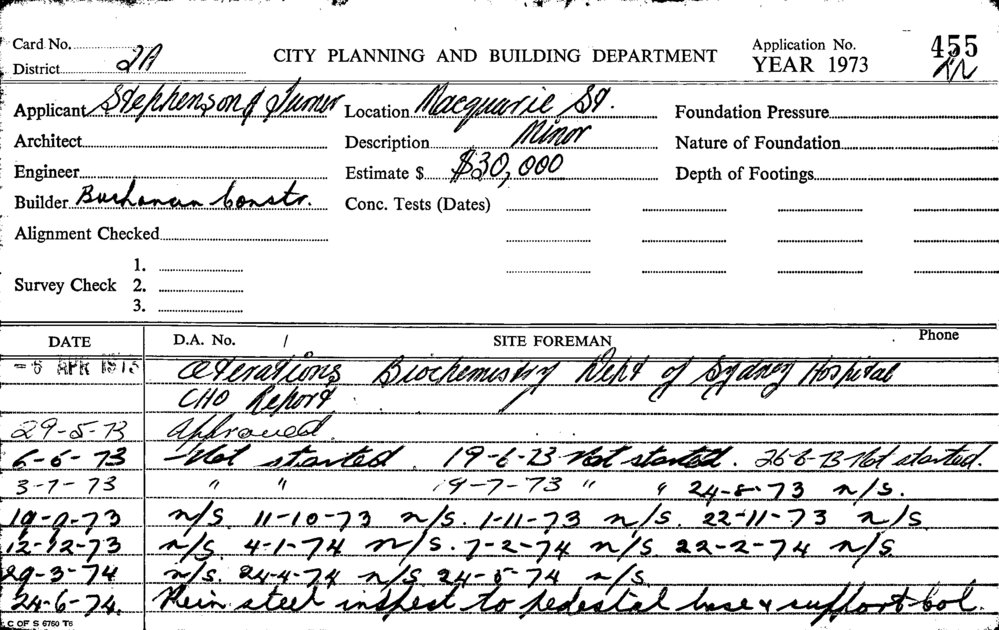 Card No. CITY PLANNING AND BUILDING DEPARTMENT Application No. 455
District 2A YEAR 1973
Applicant Stephenson & Turner Location Macquarie St. Foundation Pressure
Architect Description Minor Nature of Foundation
Engineer Estimate $ $30,000 Depth of Footings
Builder Buchanan Constr. Conc. Tests (Dates)
Alignment Checked
1.
Survey Check 2.
3.
DATE D.A. No. / SITE FOREMAN Phone
-6 APR 1973 Alterations Biochemistry Dept of Sydney Hospital
CHO Report
29-5-73 Approved.
6-6-73 Not started. 19-6-73 Not started. 26-6-73 Not started.
3-7-73 " " 19-7-73 " " 24-8-73 n/s.
19-9-73 n/s. 11-10-73 n/s. 1-11-73 n/s. 22-11-73 n/s.
12-12-73 n/s. 4-1-74 n/s. 7-2-74 n/s 22-2-74 n/s
29-3-74 n/s. 24-4-74 n/s. 24-5-74 n/s.
24-6-74. Rein steel inspect to pedestal base & support col.
C OF S 6760 T6